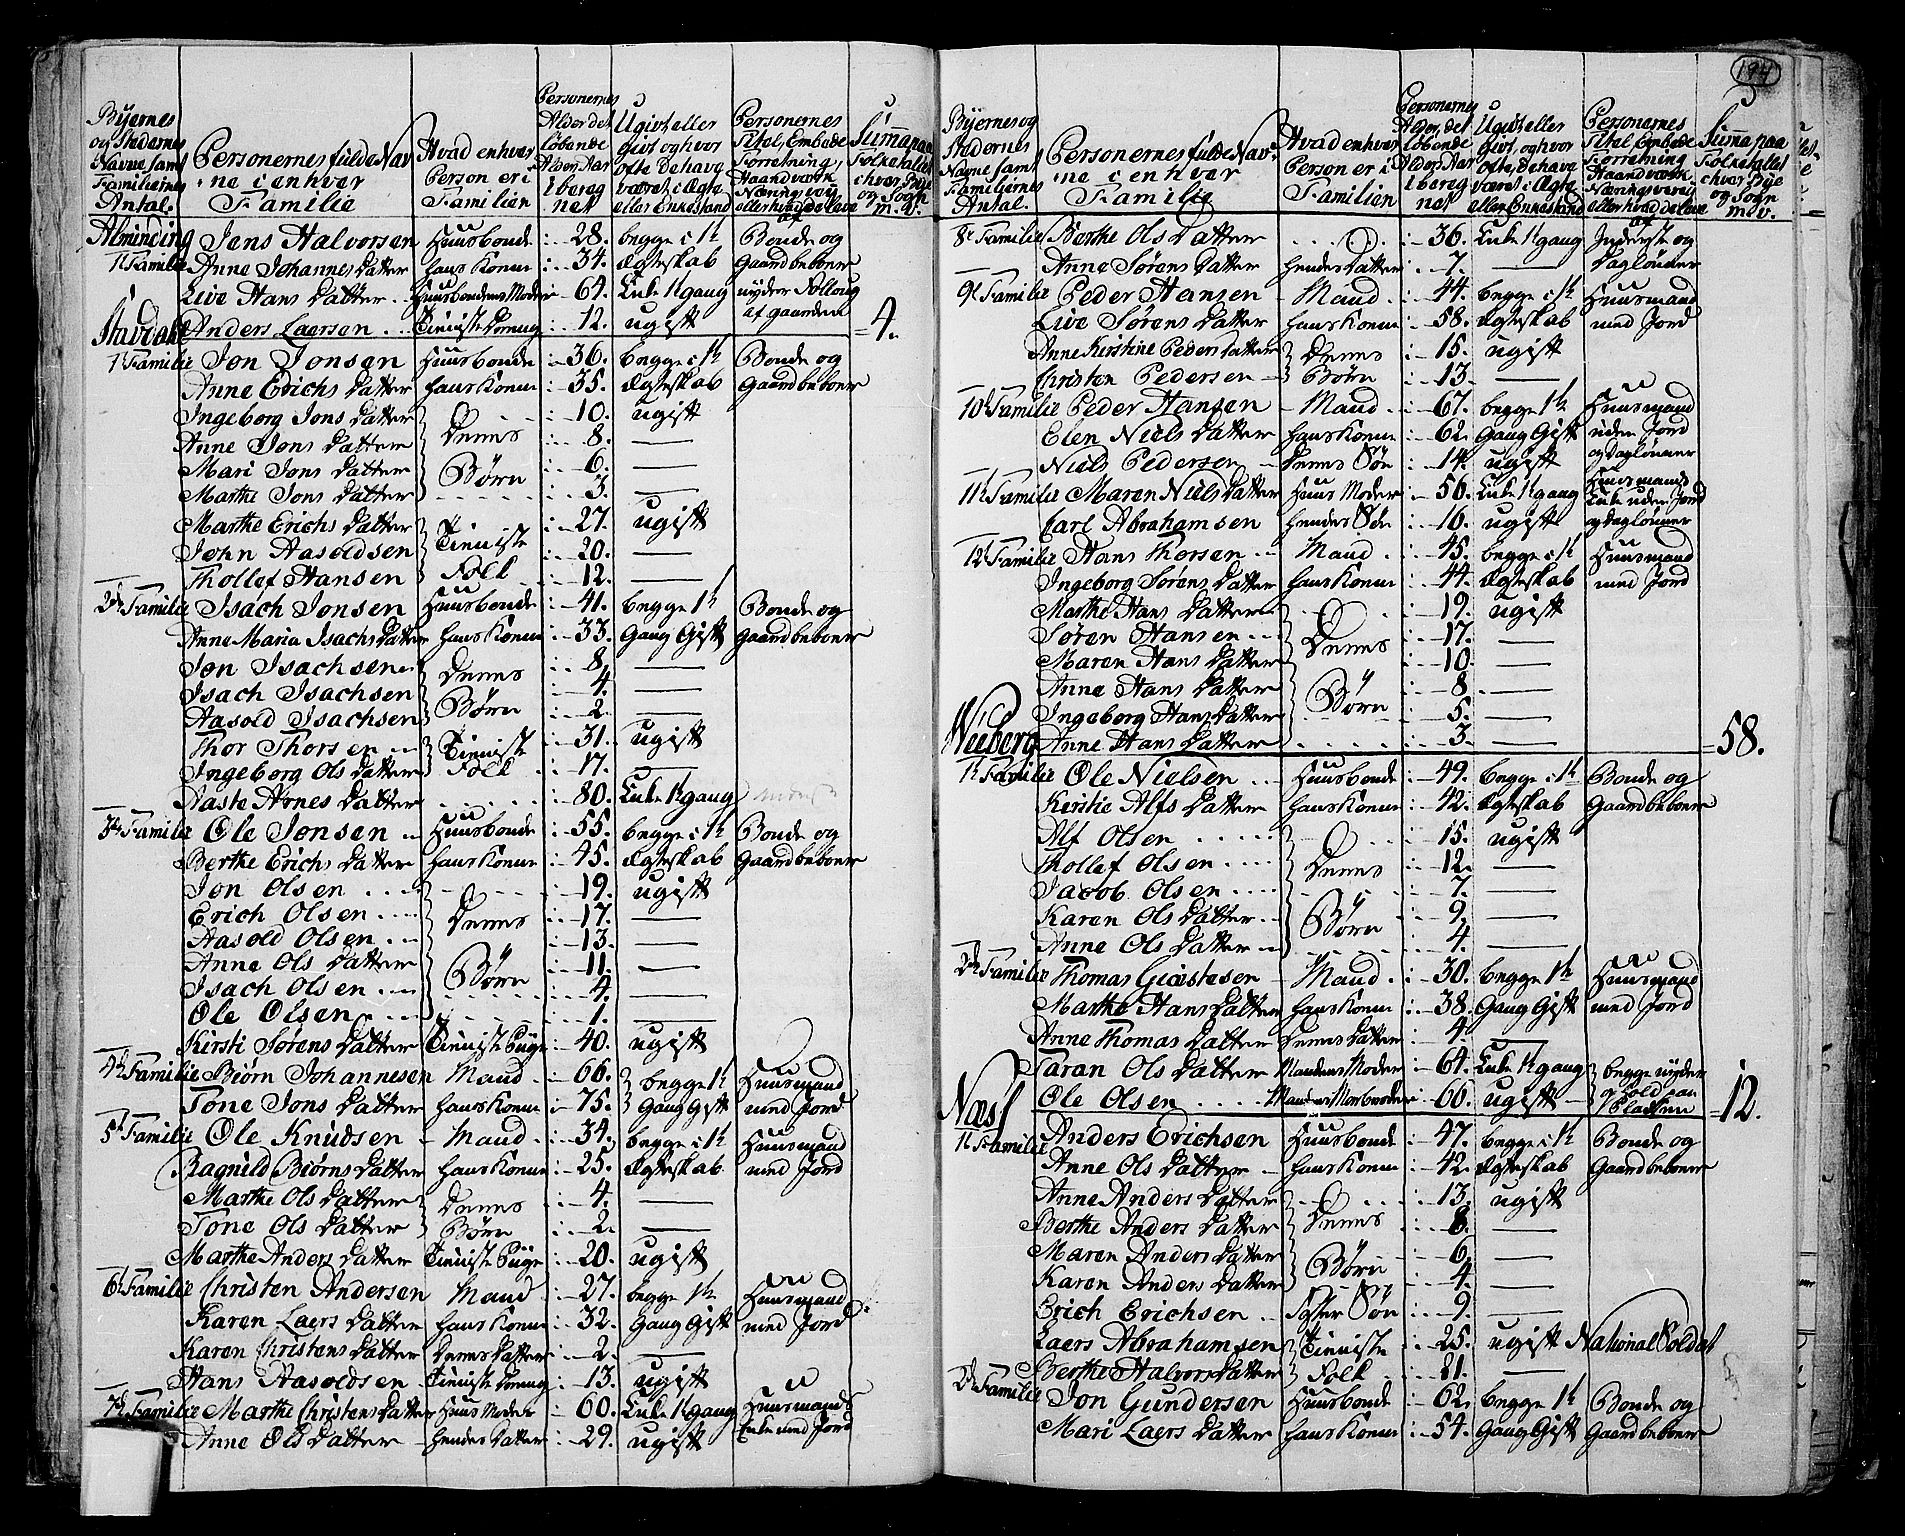 Byernes og Stedernes Navne samt Familiernes Antal. | Personernes fulde Navne i enhver Familie | Hvad enhver Person er i Familien | Personernes Alder det løbende Alders Aar iberegnet | Ugivt eller Givt, og hvor ofte de have været i Ægteskab eller Enkestand | Personernes Titel, Embede Forretning, Haandværk Næringsvei eller hvad de leve af | Summa paa Folketallet i hver Bye og Sogn m.v.
Alminding Jens Halvorsen Huusbonde 28. begge i 1t Bonde og
1t Familie Anne Johannes Datter hans Kone 34. Ægteskab Gaardbeboer
Live Hans Datter Huusbondens Moder 64. Enke 1t gang nyder Følloug
Anders Laersen Tieniste Dreng 12. ugift af gaarden 4.
Stavdale
1t Familie Jon Jonsen Huusbonde 36. begge i 1t Bonde og
Anne Erichs Datter hans Kone 35. Ægteskab Gaardbeboer
Ingeborg Jons Datter 10. ugift
Anne Jons Datter Deres 8. —
Mari Jons Datter Børn 6. —
Marthe Jons Datter 3. —
Marthe Erichs Datter Tieniste 27. ugift
John Aasoldsen 20. —
Thollef Hansen Folk 12. —
2d Familie Isach Jonsen Huusbonde 41. begge 1t Bonde og
Anne Maria Isachs Datter hans Kone 33. Gang Gift Gaardbeboer
Jon Isachsen Deres 8. —
Isach Isachsen 4. —
Aasold Isachsen Børn 2. —
Thor Thorsen Tieniste 31. ugift
Ingeborg Ols Datter Folk 17. —
Aaste Arnes Datter 80. Enke 1t gang
3d Familie Ole Jonsen Huusbonde 55. begge i 1t Bonde og
Berthe Erichs Datter hans Kone 45. Ægteskab Gaardbeboer
Jon Olsen 19. ugift
Erich Olsen Deres 17. —
Aasold Olsen 13. —
Anne Ols Datter Børn 11. —
Isach Olsen 4. —
Ole Olsen 1. —
Kirsti Sørens Datter Tieniste Piige 40. ugift
4t Familie Biørn Johannesen Mand 66. begge 1t Huusmand
Tone Jons Datter hans Kone 75. Gang Gift med Jord
5t Familie Ole Knudsen Mand 34. begge i 1t Huusmand
Ragnild Biørns Datter hans Kone 25. Ægteskab med Jord
Marthe Ols Datter Deres 4. —
Tone Ols Datter Børn 2. —
Marthe Anders Datter Tieniste Piige 20. ugift
6t Familie Christen Andersen Mand 27. begge 1t Huusmand
Karen Laers Datter hans Kone 32. Gang Gift med Jord
Karen Christens Datter Deres Datter 2. —
Hans Aasoldsen Tieniste Dreng 13. ugift
7d Familie Marthe Christens Datter Huus Moder 60. Enke 1t gang Huusmands
Anne Ols Datter Hendes Datter 29. ugift Enke med Jord
194
Byernes og Stedernes Navne samt Familiernes Antal. | Personernes fulde Navne i enhver Familie | Hvad enhver Person er i Familien | Personernes Alder, det løbende Alders Aar iberegnet | Ugivt eller Givt, og hvor ofte de have været i Ægteskab eller Enkestand | Personernes Titel, Embede Forretning Haandværk Næringsvei eller hvad de leve af | Summa paa Folketallet i hver Bye og Sogn m.v.
8t Familie Berthe Ols Datter 36. Enke 1t gang Inderste og
Anne Sørens Datter Hendes Datter 7. — Dagløner
9t Familie Peder Hansen Mand 44. begge i 1t Huusmand
Live Sørens Datter hans Kone 58. Ægteskab med Jord
Anne Kirstine Peders Datter Deres 15. ugift
Christen Pedersen Børn 13. —
10t Familie Peder Hansen Mand 67. begge 1t Huusmand
Elen Niels Datter hans Kone 62. Gang Gift uden Jord
Niels Pedersen Deres Søn 14. ugift og Dagløner
11t Familie Maren Niels Datter Huus Moder 56. Enke 1t gang Huusmands Enke uden Jord
Carl Abrahamsen Hendes Søn 16. ugift og Dagløner
12t Familie Hans Thorsen Mand 45. begge i 1t Huusmand
Ingeborg Sørens Datter hans Kone 44. Ægteskab med Jord
Marthe Hans Datter 19. ugift
Søren Hansen Deres 17. —
Maren Hans Datter 10. —
Anne Hans Datter Børn 8. —
Ingeborg Hans Datter 5. —
Anne Hans Datter 3. — 58.
Nieberg
1t Familie Ole Nielsen Huusbonde 49. begge i 1t Bonde og
Kirstie Alfs Datter hans Kone 42. Ægteskab Gaardbeboer
Alf Olsen 15. ugift
Thollef Olsen Deres 12. —
Jacob Olsen 7. —
Karen Ols Datter Børn 9. —
Anne Ols Datter 4. —
2d Familie Thomas Giæstesen Mand 30. begge 1t Huusmand
Marthe Hans Datter hans Kone 38. Gang Gift med Jord
Anne Thomas Datter Deres Datter 4. —
Taran Ols Datter Mandens Moder 64. Enke 1t gang begge nyder
Ole Olsen Mandens Morbroder 66. ugift ophold paa Pladsen 12.
Næss
1t Familie Anders Erichsen Huusbonde 47. begge i 1t Bonde og
Anne Ols Datter hans Kone 42. Ægteskab Gaardbeboer
Anne Anders Datter 13. ugift
Berthe Anders Datter Deres 8. —
Maren Anders Datter Børn 6. —
Karen Anders Datter 4. —
Erich Erichsen Søster Søn 9. —
Laers Abrahamsen Tieniste 25. ugift National Soldat
Berthe Halvors Datter Folk 21. —
2d Familie Jon Gundersen Huusbonde 62. begge 1t Bonde og
Mari Laers Datter hans Kone 54. Gang Gift Gaardbeboer